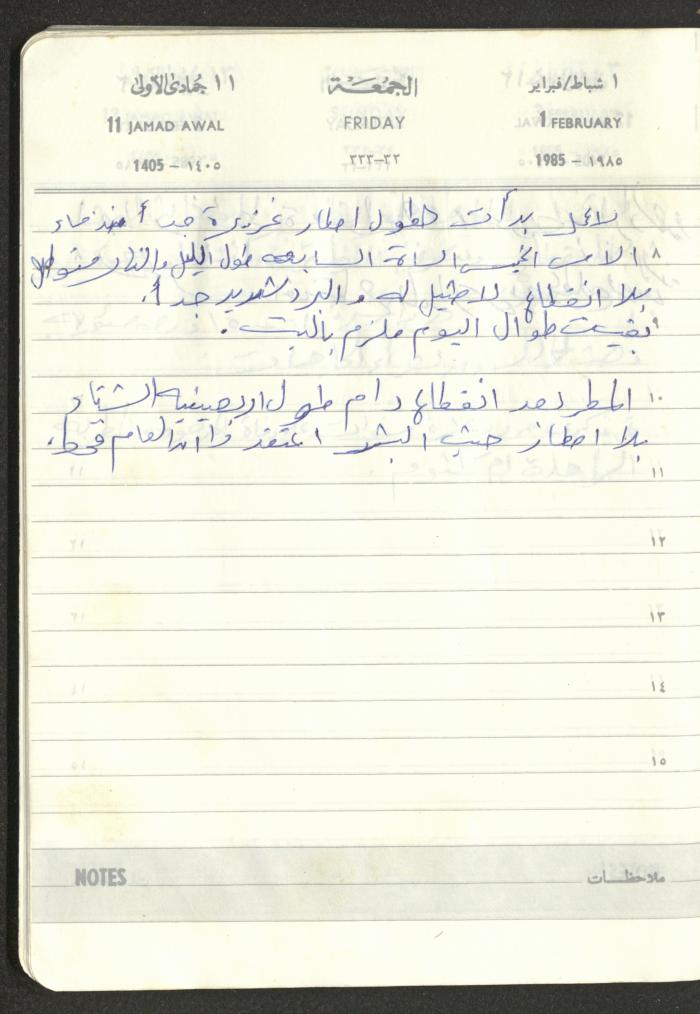 ١ شباط/فبراير
الجمعة
١١ جمادى الأولى
1 FEBRUARY
FRIDAY
11 JAMAD AWAL
1985 – ١٩٨٥
٣٢–٣٣٣
1405 – ١٤٠٥
بدأت هطول امطار غزيرة جداً منذ مساء
٨ الامس الخميس الساعة السابعه طول الليل والنهار متواصل
بلا انقطاع لا مثيل له والبرد شديد جداً.
٩ بقيت طوال اليوم ملزم بالبيت.
١٠ المطر بعد انقطاع دام طول اربعينيه الشتاء
بلا امطار حيث البشر اعتقد وان العام قحط.
١١
١٢
١٣
١٤
١٥
NOTES ملاحظات